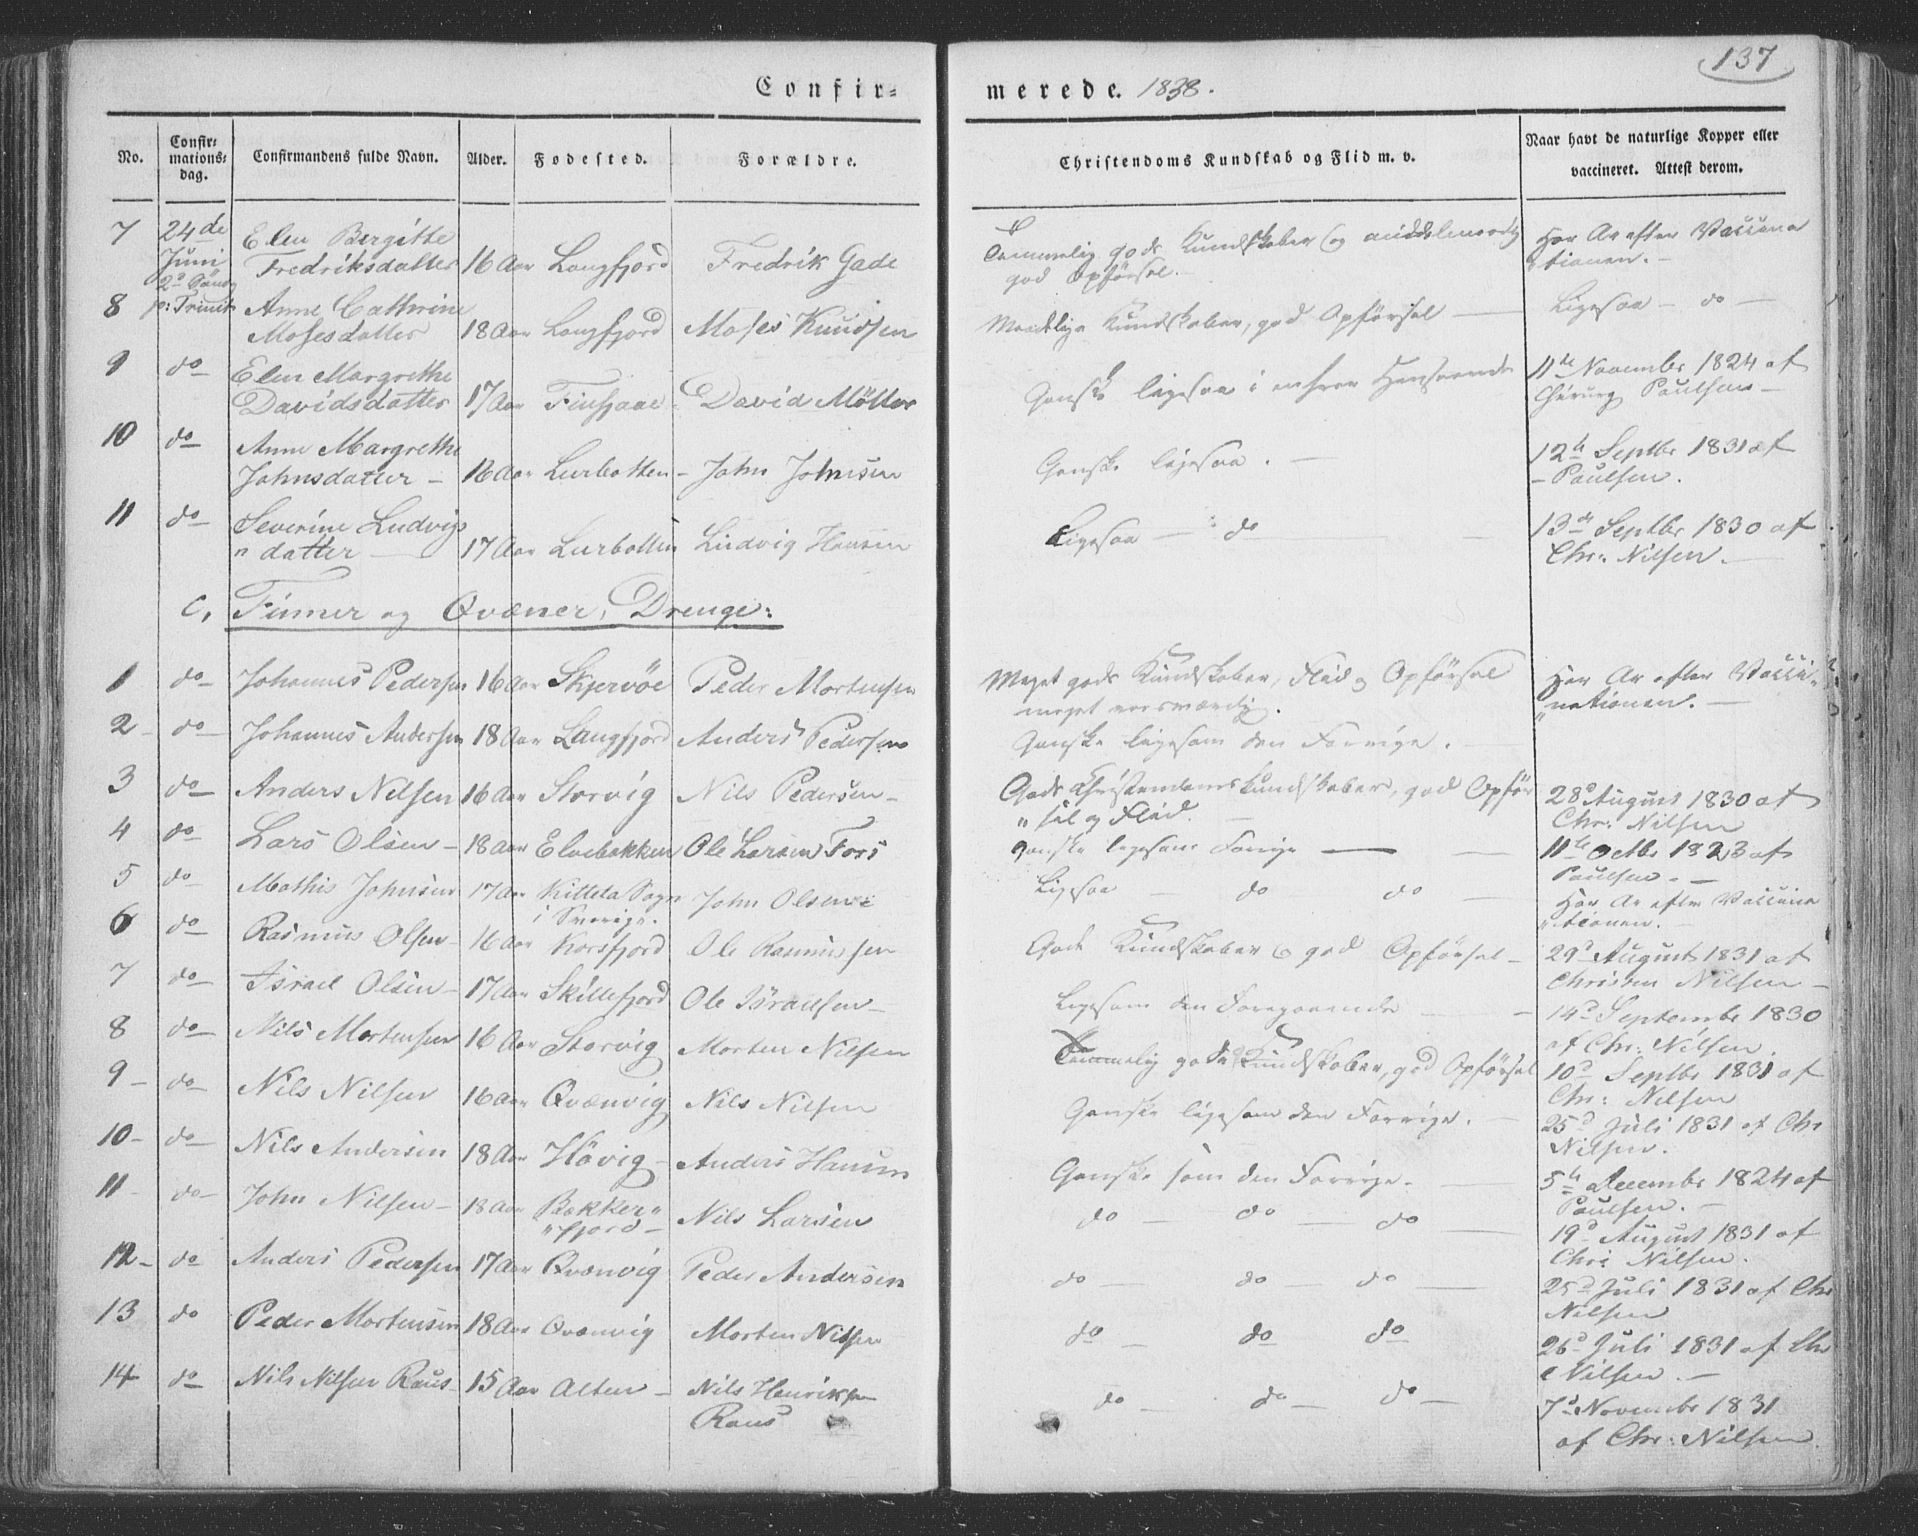 137
Confir- merede. 1838.
No. Confir- mations- dag. Confirmandens fulde Navn. Alder. Fødested. Forældre. Christendoms Kundskab og Flid m. v. Naar havt de naturlige Kopper eller vaccineret. Attest derom.
7 24de Juni 2d Sønd p: Trinit: Elen Bergitte Fredriksdatter 16 Aar Langfjord Fredrik Gade Temmelig gode Kundskaber og god Opførsel. Har Ar efter Vaccina"tionen.
8 Anne Cathrine Mosesdatter 18 Aar Langfjord Moses Knudsen Kundskaber, god Opførsel Ligesaa - do -
9 do Elen Margrethe Davidsdatter 17 Aar David Möller Ganske ligesaa i enhver Henseende 11te November 1824 af Chirurg Paulsen
10 do Anne Margrethe Johnsdatter - 16 Aar Lerbotten - John Johnsen Ganske ligesaa. 12te Septbr 1831 af - Paulsen.
11 do Severine Ludvigs "datter 17 Aar Lerbotten Ludvig Hansen Ligesaa - do 13de Septbr 1830 af Chr: Nilsen.
C, Finner og Qvæner, Drenge:
1 do Johannes Pedersen 16 Aar Skjervöe Peder Mortensen Meget gode Kundskaber, Flid og Opførsel meget roesværdig. Har Ar efter Vacci"nationen.
2 do Johannes Andersen 18 Aar Langfjord Anders Pedersen Ganske ligesom den Forrige.
3 do Anders Nilsen 16 Aar Storvig Nils Pedersen - Gode Christendomskundskaber, god Opför "sel og Flid. 28d August 1830 af Chr: Nilsen
4 do Lars Olsen - 18 Aar Elvebakken Ole Larsen Fors Ganske ligesom Forrige 11te Octbr 1823 af Paulsen.
5 do Mathis Johnsen 17 Aar Killeta Sogn i Sverige. John Olsen Ligesaa do do Har Ar efter Vaccina "tionen.
6 do Rasmus Olsen - 16 Aar Korsfjord Ole Rasmussen Gode Kundskaber og god Opförsel - 29d August 1831 af Christen Nilsen
7 do Israel Olsen - 17 Aar Skillefjord Ole Israelsen - Ligesom den Foregaaende 14d Septembr 1830 af Chr: Nilsen.
8 do Nils Mortensen 16 Aar Storvig Morten Nilsen Temmelig gode Kundskaber, god Opförsel 10d Septbr 1831 af Chr: Nilsen
9 - do Nils Nilsen 16 Aar Qvænvig Nils Nilsen Ganske ligesom den Forrige. 25d Juli 1831 af Chr Nilsen.
10 - do Nils Andersen 18 Aar Hövig - Anders Hansen Ganske som den Forrige. 5te Decembr 1824 af Paulsen.
11 - do John Nilsen - 18 Aar Bekker" "fjord - Nils Larsen do - do - do 19d August 1831 af Chr: Nilsen.
12 - do Anders Pedersen 17 Aar Qvænvig Peder Andersen do - do do 25d Juli 1831 af Chr Nilsen
13 do Peder Mortensen 18 Aar Qvænvig Morten Nilsen do - do do 26d Juli 1831 af Chr Nilsen.
14 do Nils Nilsen Raus - 15 Aar Alten - Nils Henriksen Raus do - do - do 7d November 1831 af Chr: Nilsen.